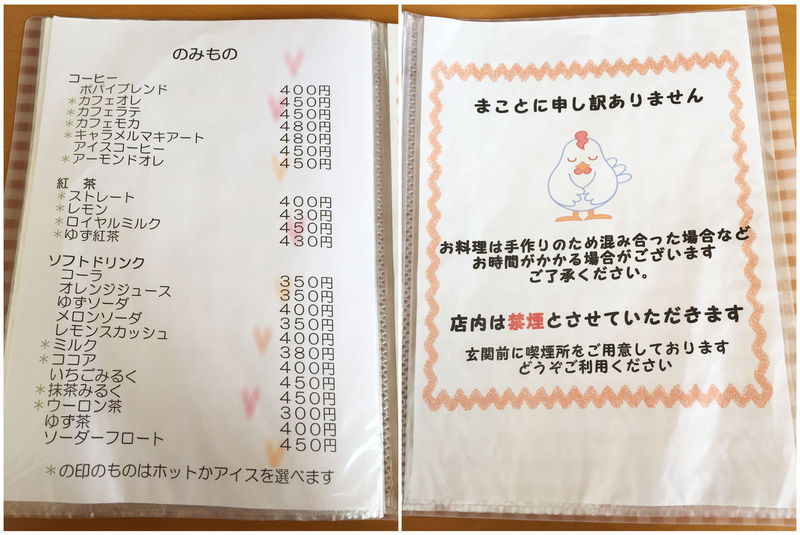 のみもの
コーヒー
ポパイブレンド 400円
*カフェオレ 450円
*カフェラテ 450円
*カフェモカ 480円
*キャラメルマキアート 480円
アイスコーヒー 450円
*アーモンドオレ 450円
紅 茶
*ストレート 400円
*レモン 430円
*ロイヤルミルク 450円
*ゆず紅茶 430円
ソフトドリンク
コーラ 350円
オレンジジュース 350円
ゆずソーダ 400円
メロンソーダ 350円
レモンスカッシュ 400円
*ミルク 380円
*ココア 400円
いちごみるく 450円
*抹茶みるく 450円
*ウーロン茶 300円
ゆず茶 400円
ソーダーフロート 450円
*の印のものはホットかアイスを選べます
まことに申し訳ありません
お料理は手作りのため混み合った場合など
お時間がかかる場合がございます
ご了承ください。
店内は禁煙とさせていただきます
玄関前に喫煙所をご用意しております
どうぞご利用ください